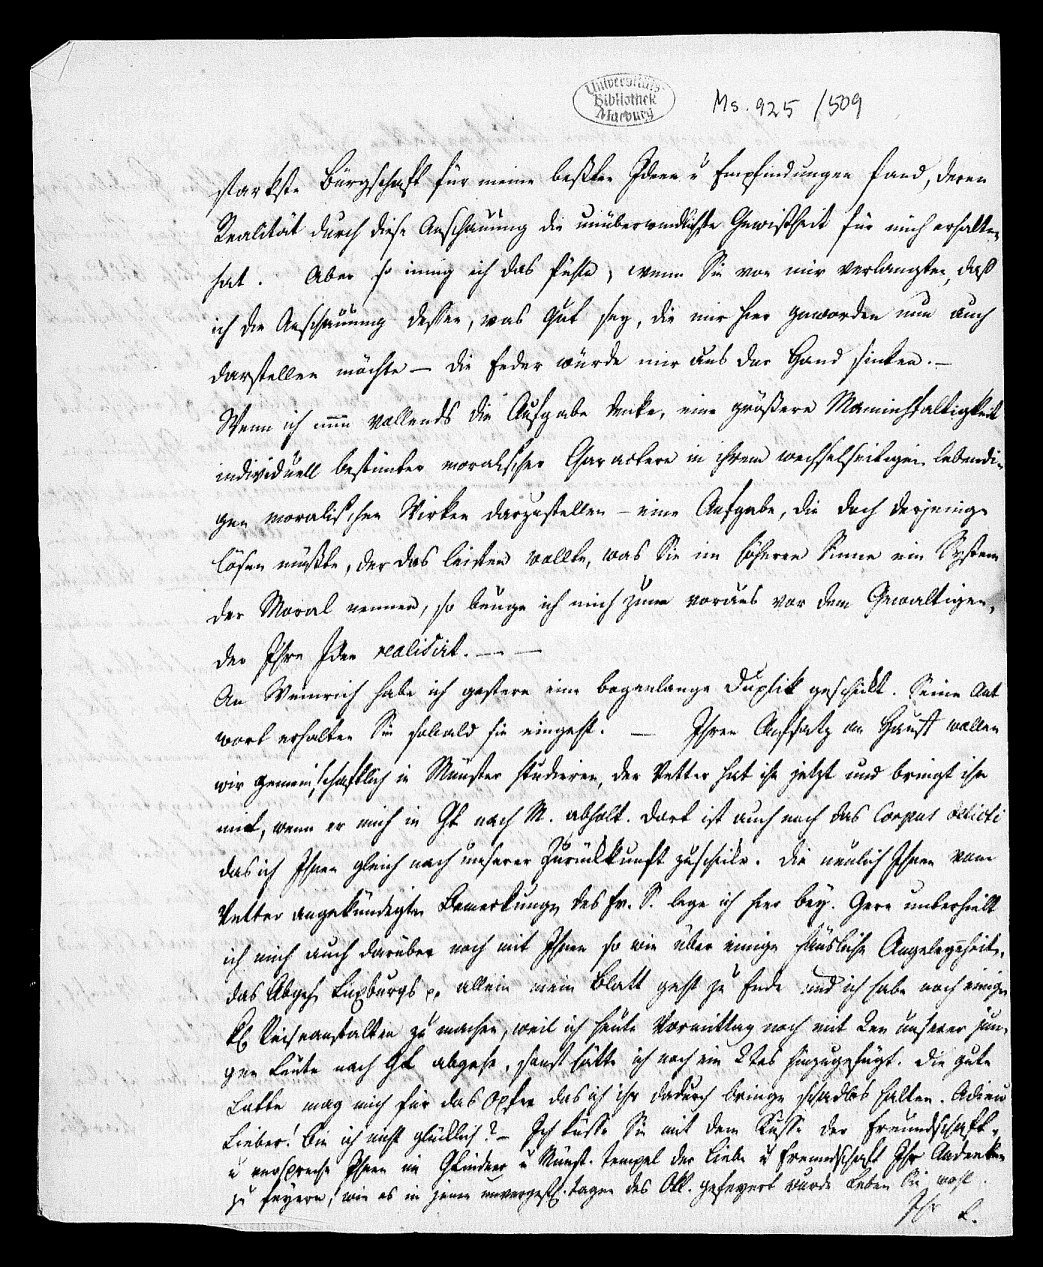 Universitäts-
Bibliothek
Marburg
Ms. 925 /509
starkste Bürgschaft für meine beßten Ideen u Empfindungen fand, deren
Realität durch diese Anschauung die unüberwindlichste Gewißheit für mich erhalten
hat. Aber so innig ich das fühle, wenn Sie von mir verlangten, daß
ich die Anschauung dessen, was Gut sey, die mir hier geworden nun auch
darstellen möchte — die Feder würde mir aus der Hand sinken. —
Wenn ich nun vollends die Aufgabe denke, eine größere Mannichfaltigkeit
individuell bestimter moralischer Charactere in ihrem wechselseitigen lebendi-
gen moralischen Wirken darzustellen — eine Aufgabe, die doch derjenige
lösen müßte, der das leisten wollte, was Sie im höheren Sinne ein System
der Moral nennen, so beuge ich mich zum voraus vor dem Gewaltigen,
der Ihre Idee realisirt. — —
An Weinrich habe ich gestern eine bogenlange Duplik geschickt. Seine Ant
wort erhalten Sie sobald sie eingeht. — Ihren Aufsatz an Hauff wollen
wir gemeinschaftlich in Münster studieren, der Vetter hat ihn jetzt und bringt ihn
mit, wenn er mich in Gk nach M. abholt. Dort ist auch noch das Corpus delicti
das ich Ihnen gleich nach unserer Zurückkunft zuschicke. Die neulich Ihnen vom
Vetter angekündigten Bemerkungen des Fr. S. lege ich hier bey. Gern unterhielt
ich mich auch darüber noch mit Ihnen so wie über einige häusliche Angelegenheiten,
das Abgeh Luxburgs p. allein mein Blatt geht zu Ende und ich habe noch einige
Reiseanstalten zu machen, weil ich heute Vormittag noch mit den unserer jun-
gen Leute nach Gk abgehe, sonst hätte ich noch ein 2tes hinzugefügt. Die gute
Lotte mag mich für das Opfer das ich ihr dadurch bringe schadlos halten. Adieu
Lieber! Bin ich nicht glücklich? — Ich küsse Sie mit dem Kusse der Freundschaft,
u verspreche Ihnen im Gkinder u Münst. Tempel der Liebe u Freundschaft Ihr Andenken
zu feyern, wie es in jenen unvergeßl. Tagen des Okt. gefeyert wurde Leben Sie wohl.
Ihr L.